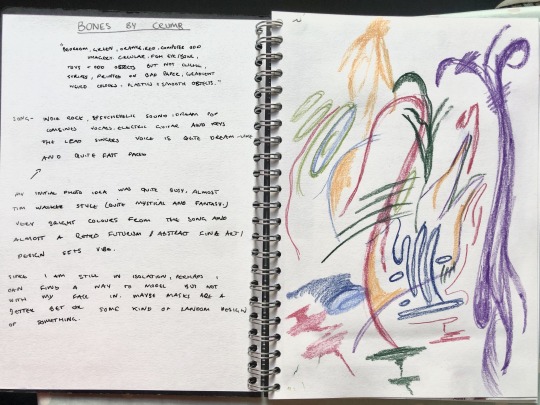 BONES BY CRUMB
"BEDROOM, GREEN, ORANGE, RED, COMPUTER ODD
IMAGERY. CIRCULAR. FISH
TOYS + ODD OBJECTS BUT NOT
PRINTED ON BAD PAPER, GRADIENT
WORD COLOURS. PLASTIC + SMOOTH OBJECTS."
SONG - INDIE ROCK, PSYCHEDELIC SOUND, DREAM POP
COMBINES VOCALS, ELECTRIC GUITAR AND KEYS
THE LEAD SINGERS VOICE IS QUITE DREAM-LIKE
AND QUITE FAST PACED
MY INITIAL PHOTO IDEA WAS QUITE BUSY, ALMOST
TIM WALKER STYLE (QUITE MYSTICAL AND FANTASY.)
VERY BRIGHT COLOURS FROM THE SONG AND
ALMOST A RETRO FUTURISM / ABSTRACT FINE ART /
DESIGN SETS VIBE.
SINCE I AM STILL IN ISOLATION, PERHAPS I
CAN FIND A WAY TO MODEL BUT NOT
WITH MY FACE IN. MAYBE MASKS ARE A
BETTER BET OR SOME KIND OF RANDOM DESIGN
OF SOMETHING.